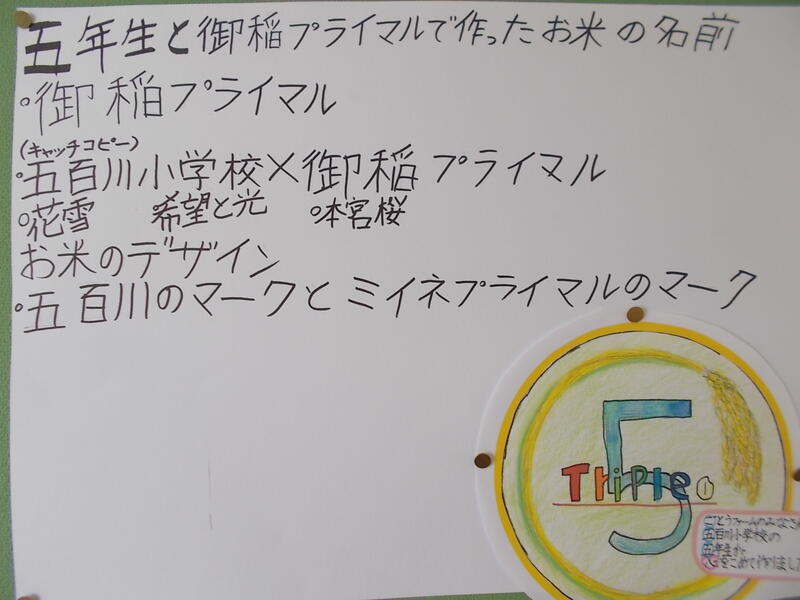 五年生と御稲プライマルで作ったお米の名前
・御稲プライマル
(キャッチコピー)
・五百川小学校×御稲プライマル
・花雪 ・希望と光 ・本宮桜
お米のデザイン
・五百川のマークとミイネプライマルのマーク
5
Triple
ごとうファームのみなさん
五百川小学校の
五年生が
心をこめて作りました